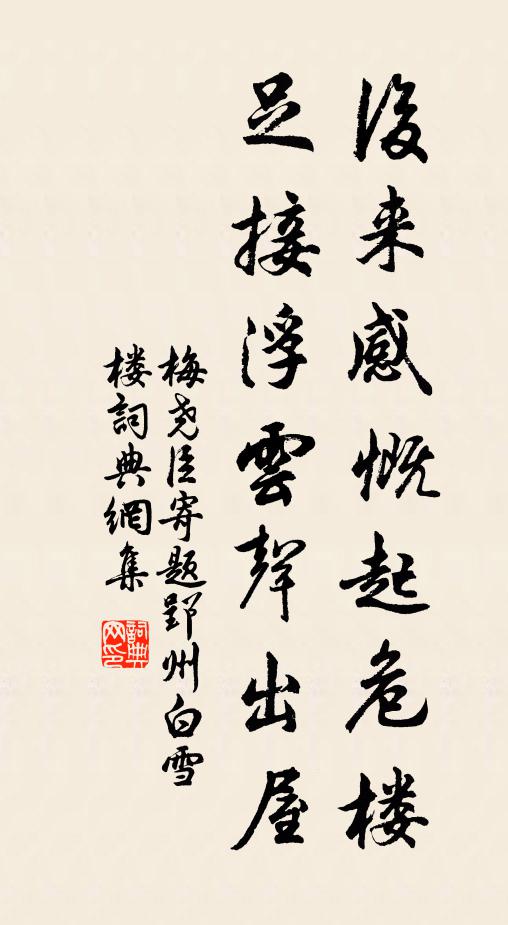 後来感慨起危楼
足接浮雲聲出屋
梅尧臣寄题郢州白雪
楼詞典網集
詞典网印